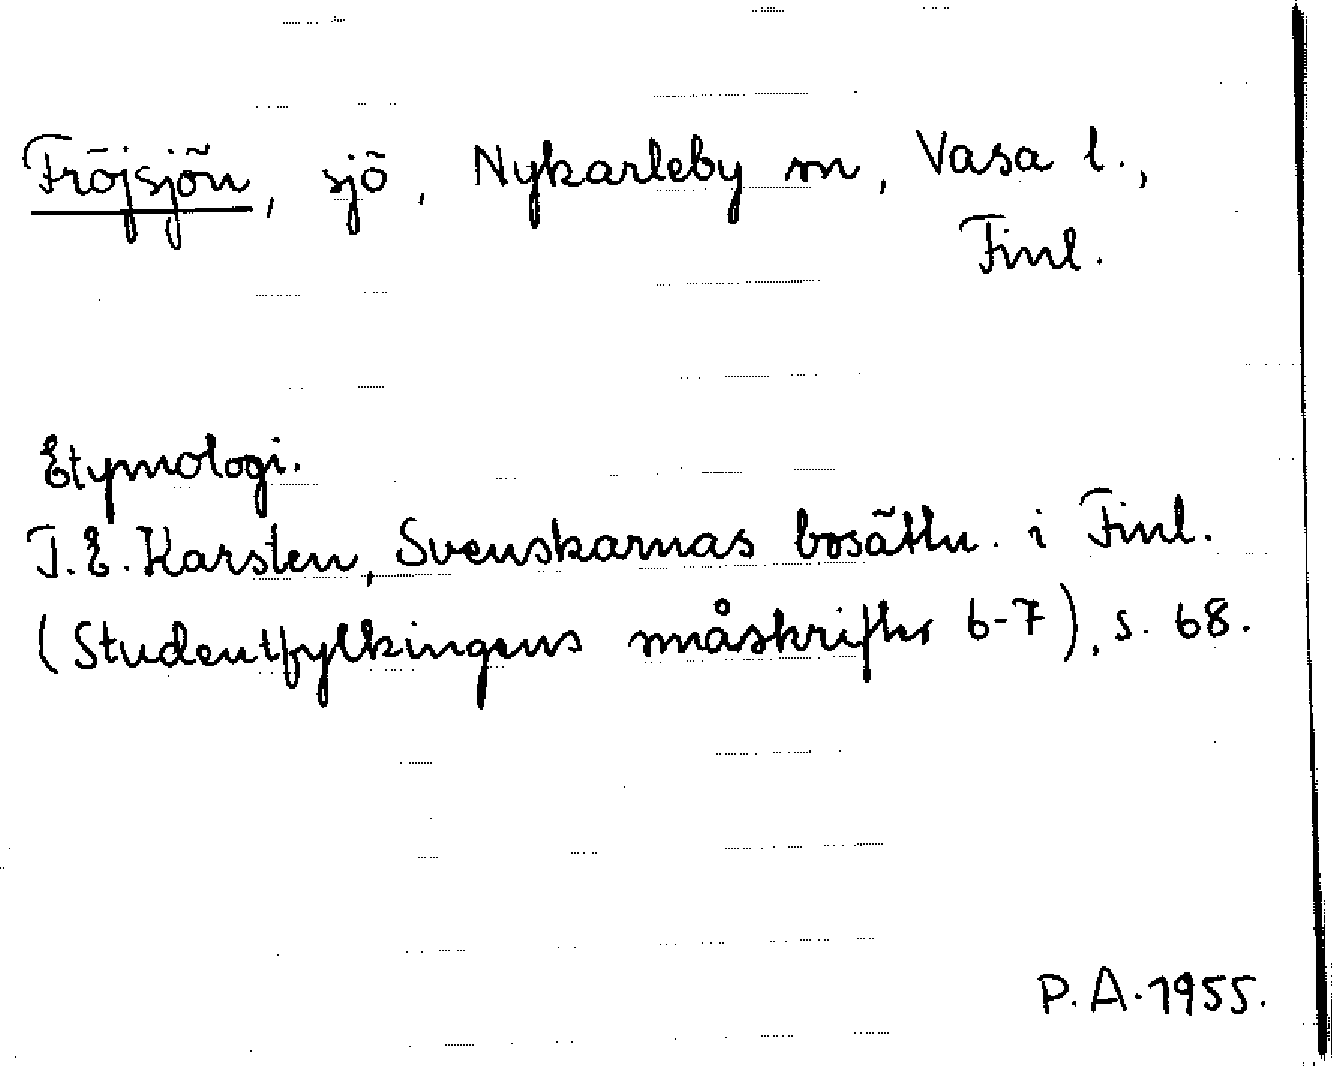 Fröjsjön, sjö, Nykarleby m, Vasa l.,
Finl.
Etymologi.
T.E. Karsten, Svenskarnas bosättn. i Finl.
(Studentfylkingens småskrifter 6-7), s. 68.
P.A. 1955.